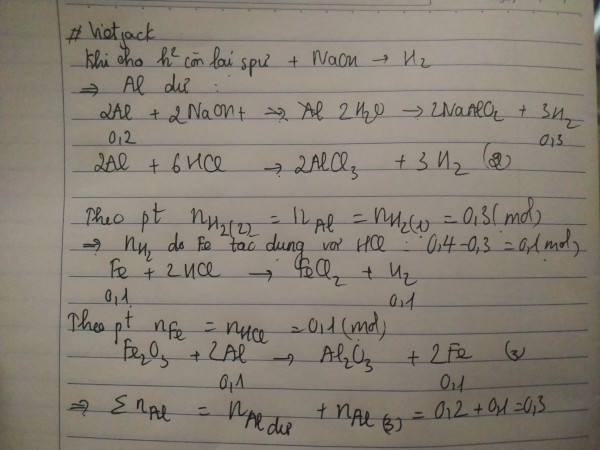 # Vietjack
Khi cho h² còn lại spư + NaOH → H₂
⇒ Al dư :
2Al + 2NaOH + 2H₂O → 2NaAlO₂ + 3H₂
0,2 0,3
2Al + 6HCl → 2AlCl₃ + 3H₂ (2)
Theo pt nH₂(2) = nAl = nH₂(1) = 0,3 (mol)
⇒ nH₂ do Fe tác dụng với HCl : 0,4 - 0,3 = 0,1 (mol)
Fe + 2HCl → FeCl₂ + H₂
0,1 0,1
Theo pt nFe = nHCl = 0,1 (mol)
Fe₂O₃ + 2Al → Al₂O₃ + 2Fe (3)
0,1 0,1
⇒ Σ nAl = nAl dư + nAl (3) = 0,2 + 0,1 = 0,3